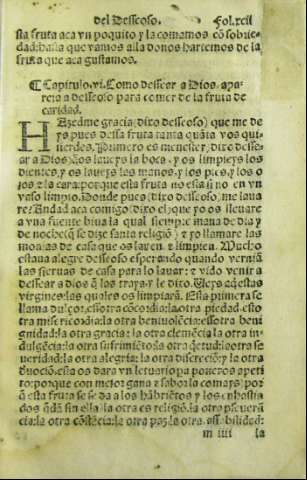 del Desseoso. Fol.xcii
sta fruta aca vn poquito y la comamos cō sobrie-
dad: hasta que vamos alla donos hartemos de la
fruta que aca gustamos.
¶ Capitulo.vi. Como dessear a Dios, apa-
rejo a desseoso para comer de la fruta de
caridad.
HAzedme gracia (dixo desseoso) que me de
ys pues dessa fruta tanta quāta vos qui-
sierdes. Primero es menester, dixo dessear
a Dios, q̄ os laueys la boca, y os limpieys los
dientes, y os laueys las manos, y los pies, y los o
jos, z la cara: porque esta fruta no esta si no en vn
vaso limpio. Donde pues (dixo desseoso) me laua
re? Andad aca comigo (dixo el) que yo os lleuare
a vna fuente biua la qual siempre mana de dia y
de noche, q̄ se dize santa religiō, z yo llamare las
moças de casa que os lauen, z limpien. Mucho
estaua alegre desseoso esperando quando verniā
las sieruas de casa para lo lauar: z vido venir a
dessear a dios q̄ las traya, y le dixo. Veys aq̄ estas
virgines: las quales os limpiarā. Esta primera se
llama dulçor: essotra cōcordia: la otra piedad: esso
tra misericordia: la otra beniuolēcia: essotra beni
gnidad: la otra gracia: la otra clemēcia: la otra in
dulgēcia: la otra sufrimiēto: la otra q̄etud: la otra se
ueridad: la otra alegria: la otra discreciō: y la otra
deuociō. esta os dara vn letuario pa poneros apeti
to: porque con mejor gana z sabor la comays: por
q̄ esta fruta se da a los hābriētos y los
sin ella: la otra es religiō. la otra
la otra cōstēcia: la otra paz: la otra
m iiij la